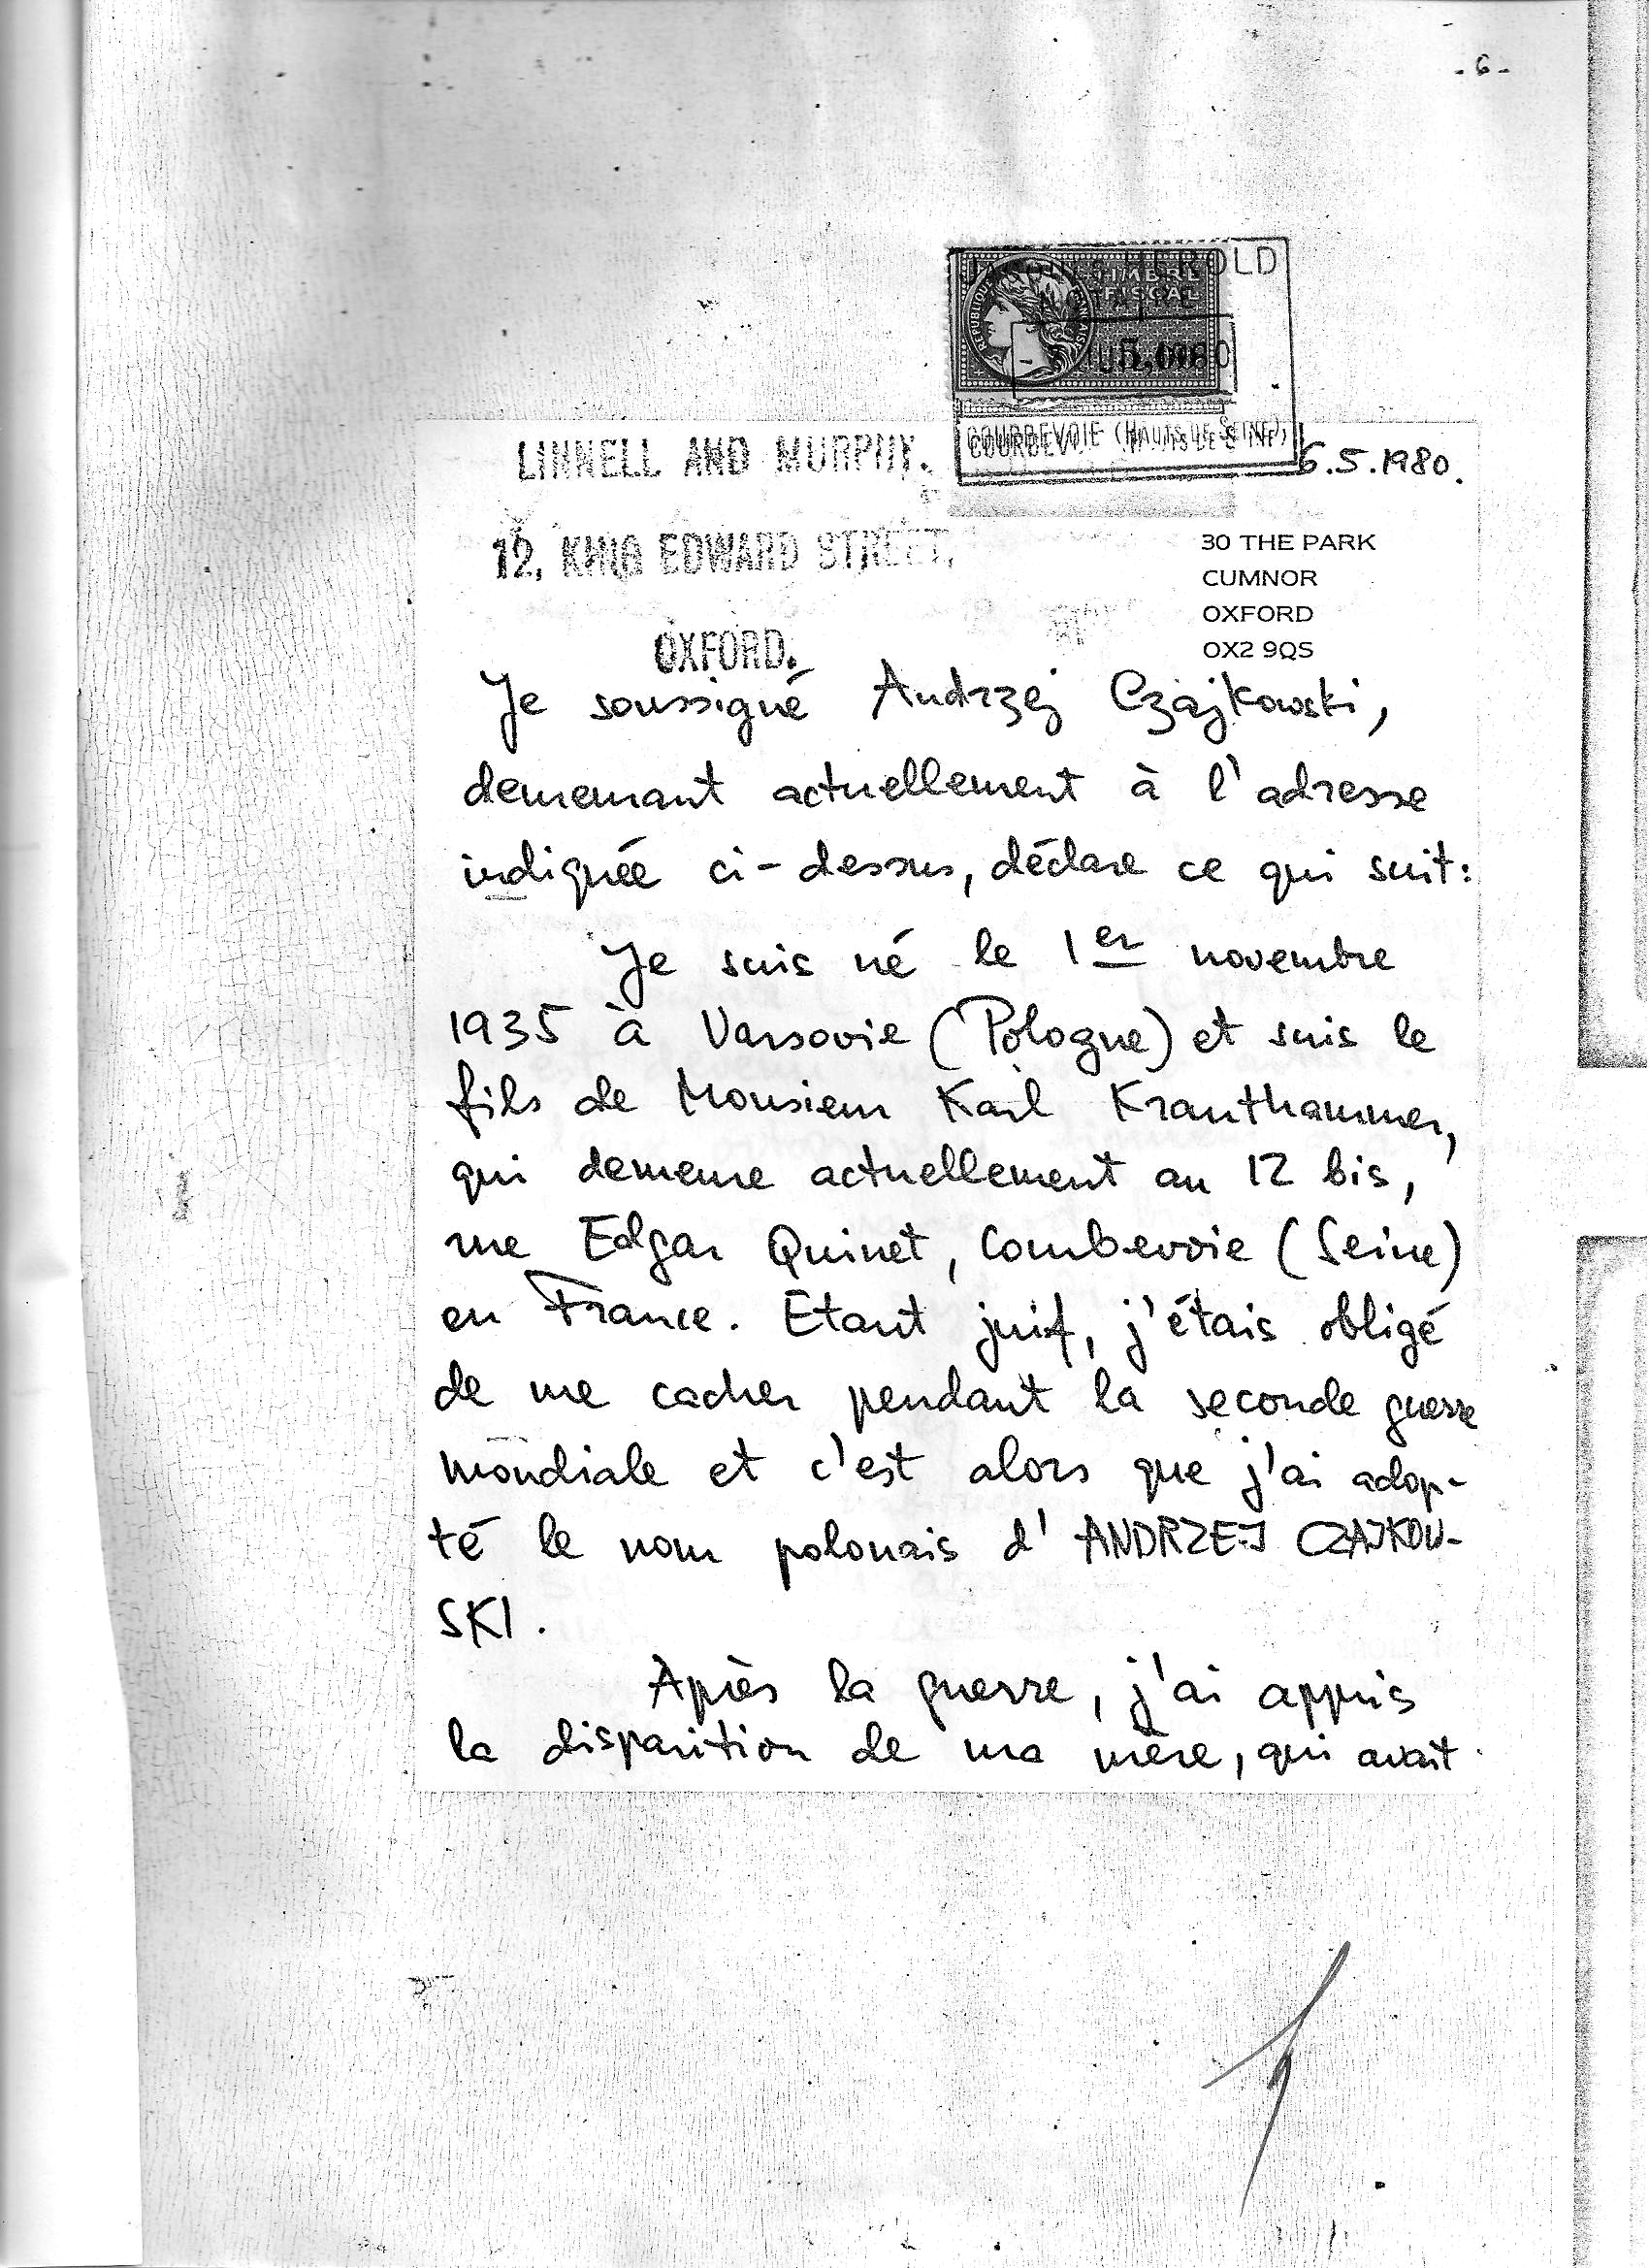 - 6 -
HEROLD
TIMBRE
FISCAL
NOTAIRE
RÉPUBLIQUE FRANÇAISE
COURBEVOIE (HAUTS DE SEINE)
LINNELL AND MURPHY.
6.5.1980.
12, KING EDWARD STREET,
OXFORD.
30 THE PARK
CUMNOR
OXFORD
OX2 9QS
Je soussigné Andrzej Czajkowski,
demeurant actuellement à l'adresse
indiquée ci-dessus, déclare ce qui suit:
Je suis né le 1er novembre
1935 à Varsovie (Pologne) et suis le
fils de Monsieur Karl Krauthammer,
qui demeure actuellement au 12 bis,
rue Edgar Quinet, Courbevoie (Seine)
en France. Etant juif, j'étais obligé
de me cacher pendant la seconde guerre
mondiale et c'est alors que j'ai adop-
té le nom polonais d'ANDRZEJ CZAJKOW-
SKI.
Après la guerre, j'ai appris
la disparition de ma mère, qui avait